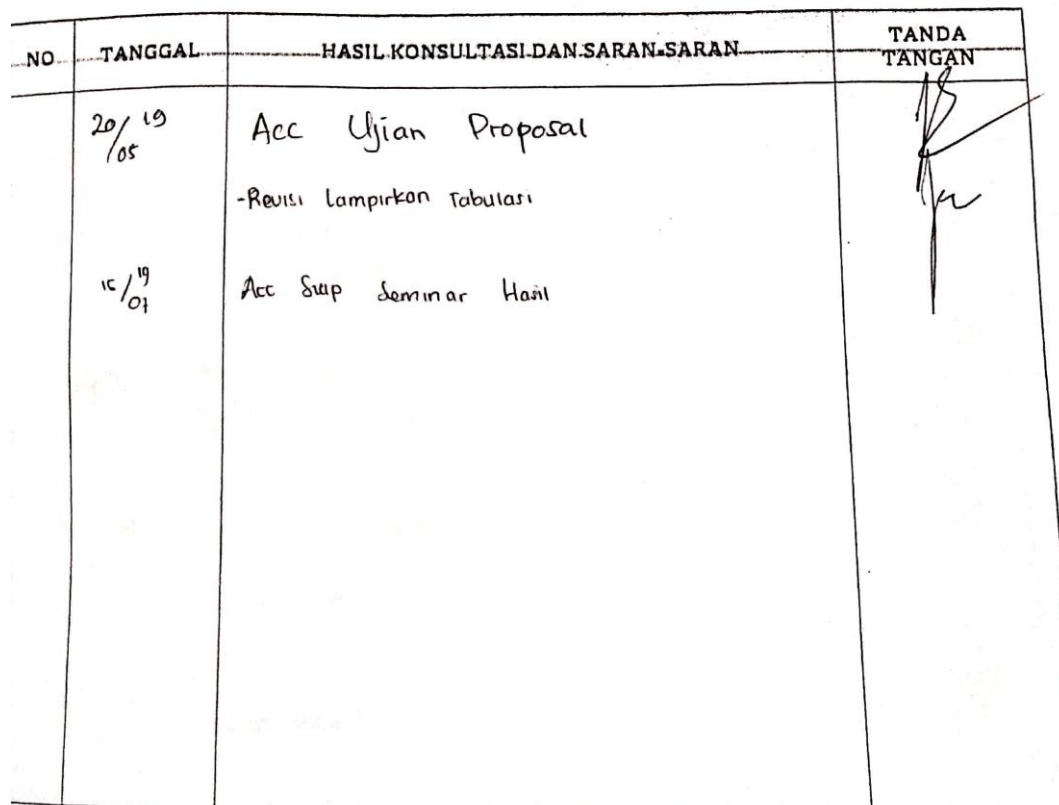 NO TANGGAL HASIL KONSULTASI DAN SARAN-SARAN TANDA TANGAN
20/05 19 Acc Ujian Proposal
-Revisi Lampirkan Tabulasi
/07 19 Acc Seminar Hasil